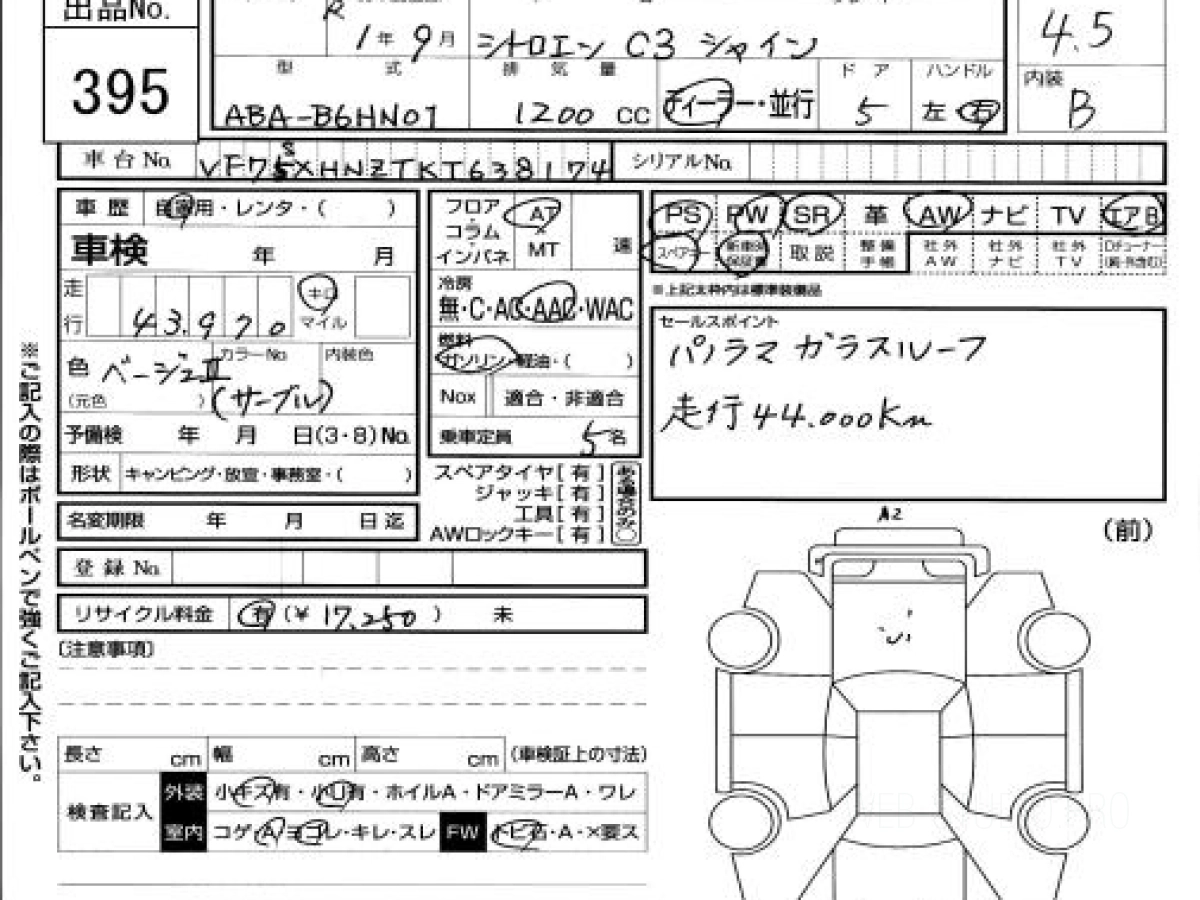 出品No.
395
R 1年 9月 シトロエン C3 シャイン
4.5
型 式 排 気 量 ド ア ハンドル 内装
ABA-B6HN01 1200 CC ディーラー・並行 5 左 右 B
車台No. VF7SXHNZTKT638174 シリアルNo.
車 歴 自家用・レンタ・( )
車検 年 月
走行 43,970 キロ マイル
色 ベージュⅡ カラーNo. 内装色
(元色 ) (サーブル)
予備検 年 月 日(3・8)No.
形状 キャンピング・放宣・事務室・( )
名変期限 年 月 日迄
フロア コラム インパネ AT MT 速
冷房
無・C・AC・AAC・WAC
燃料
ガソリン・軽油・( )
Nox 適合・非適合
乗車定員 5名
スペアタイヤ[有]
ジャッキ[有]
工具[有]
AWロックキー[有]
ある場合のみ○
PS PW SR 革 AW ナビ TV エアB
スペアキー 新車時保証書 取説 整備手帳 社外AW 社外ナビ 社外TV Dチューナー
※上記太枠内は標準装備品
セールスポイント
パノラマ ガラスルーフ
走行44.000Km
登録No.
リサイクル料金 有 (¥ 17,250 ) 未
〔注意事項〕
長さ cm 幅 cm 高さ cm (車検証上の寸法)
検査記入 外装 小キズ有・小U有・ホイルA・ドアミラーA・ワレ
室内 コゲ・A・ヨゴレ・キレ・スレ FW トビ石・A・×要ス
A2
(前)
※ご記入の際はボールペンで強くご記入下さい。